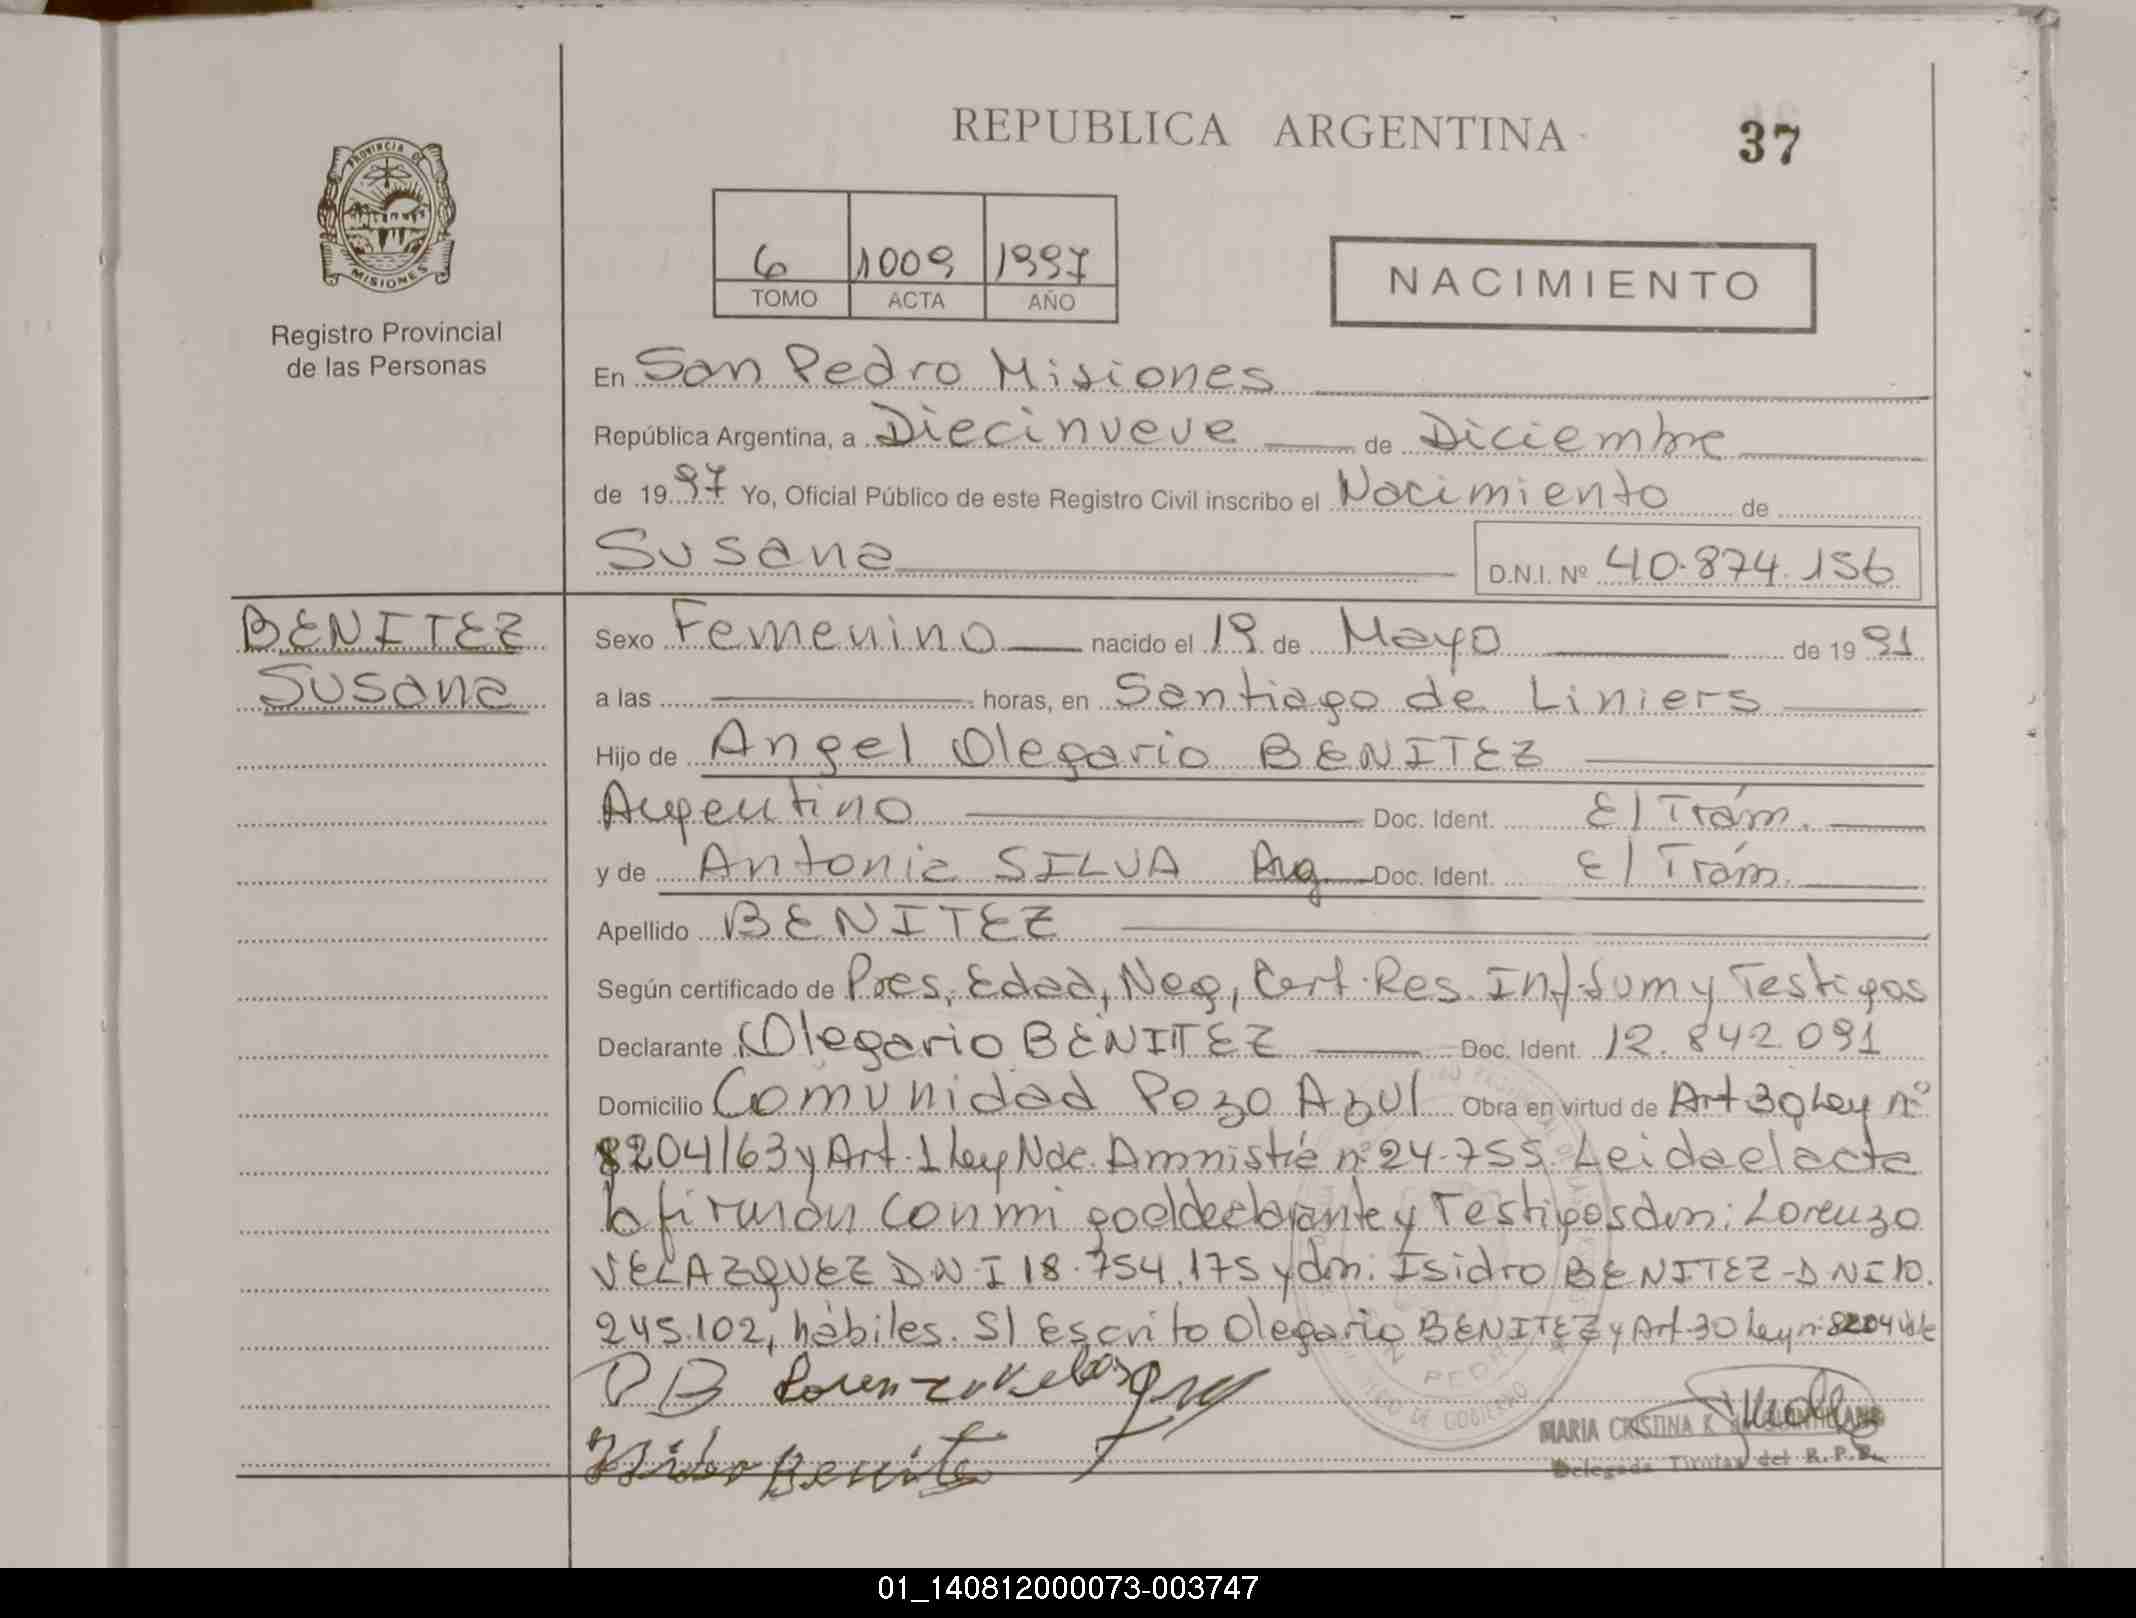 REPUBLICA ARGENTINA
37
PROVINCIA DE
MISIONES
Registro Provincial
de las Personas
6 1009 1997
TOMO ACTA AÑO
NACIMIENTO
En San Pedro Misiones
República Argentina, a Diecinueve de Diciembre
de 1997 Yo, Oficial Público de este Registro Civil inscribo el Nacimiento de
Susana D.N.I. Nº 40.874.156
BENITEZ
Susana
Sexo Femenino nacido el 19 de Mayo de 1991
a las horas, en Santiago de Liniers
Hijo de Angel Olegario BENITEZ
Argentino Doc. Ident. E/Trám.
y de Antonia SILVA Arg. Doc. Ident. E/Trám.
Apellido BENITEZ
Según certificado de Pres, Edad, Neg, Cert. Res. Inf. Sum y Testigos
Declarante Olegario BENITEZ Doc. Ident. 12.842.091
Domicilio Comunidad Pozo Azul Obra en virtud de Art 30 Ley nº
8204/63 y Art. 1 Ley Nac. Amnistía nº 24.755. Leida el acta
la firman conmigo el declarante y Testigos dn: Lorenzo
VELAZQUEZ DNI 18.754.175 y dn: Isidro BENITEZ - DNI 10.
245.102, hábiles. S/ Escrito Olegario BENITEZ y Art. 30 Ley nº 8204 Vale
OB Lorenzo Velasquez
Isidro Benitez
MARIA CRISTINA K.
Delegada Titular del R.P.P.
01_140812000073-003747